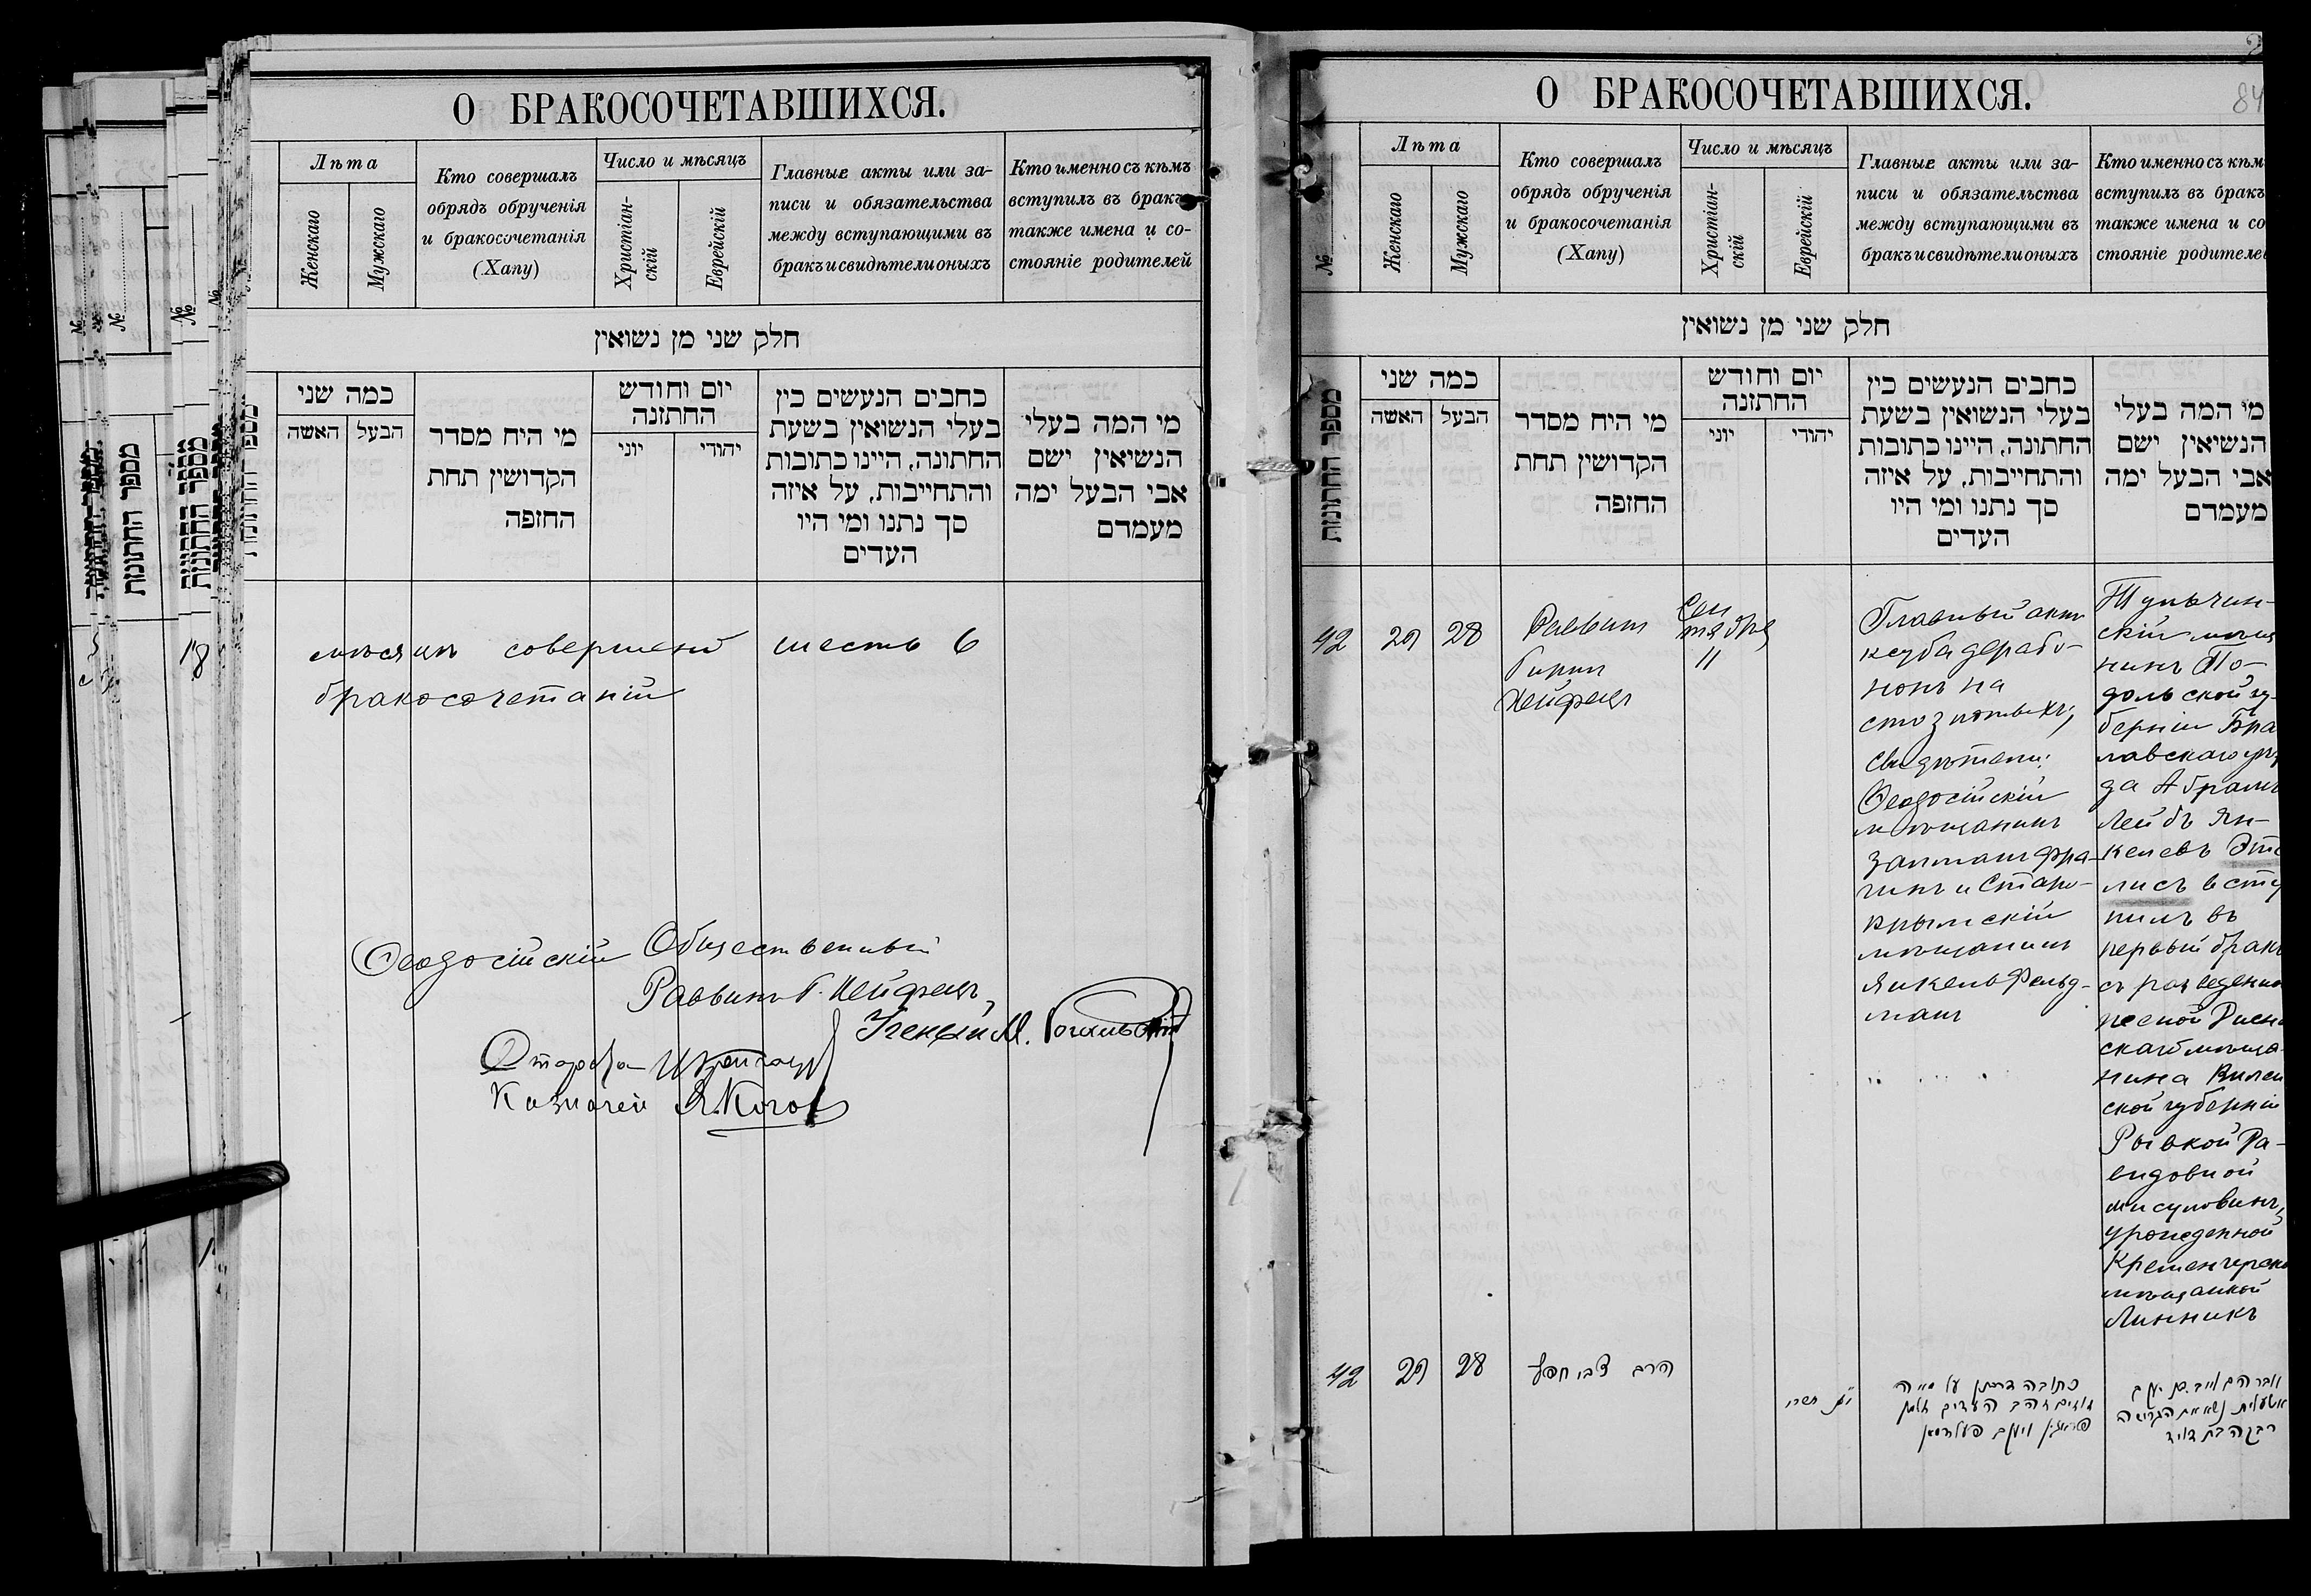 О БРАКОСОЧЕТАВШИХСЯ.
Лѣта
Женскаго
Мужскаго
Кто совершалъ
обрядъ обрученія
и бракосочетанія
(Хапу)
Число и мѣсяцъ
Христіан-
скій
Еврейскій
Главные акты или за-
писи и обязательства
между вступающими въ
бракъ и свидѣтели оныхъ
Кто именно съ кѣмъ
вступилъ въ бракъ
также имена и со-
стояніе родителей
חלק שני מן נשואין
כמה שני
האשה
הבעל
מי היח מסדר
הקדושין תחת
החזפה
יום וחודש
החתזנה
יוני
יהודי
כחבים הנעשים כין
בעלי הנשואין בשעת
החתונה, היינו כתובות
והתחייבות, על איזה
סך נתנו ומי היו
העדים
מי המה בעלי
הנשיאין ישם
אבי הבעל ימה
מעמדם
мѣсяцъ совершено шесть 6
бракосочетаній
Феодосійскій Общественный
Раввинъ Г. Хейфецъ
Ученый М.
Староста
Казначей Я. Коган
О БРАКОСОЧЕТАВШИХСЯ.
84
№
Лѣта
Женскаго
Мужскаго
Кто совершалъ
обрядъ обрученія
и бракосочетанія
(Хапу)
Число и мѣсяцъ
Христіан-
скій
Еврейскій
Главные акты или за-
писи и обязательства
между вступающими въ
бракъ и свидѣтели оныхъ
Кто именно съ кѣм
вступилъ въ бракъ
также имена и со
стояніе родителе
חלק שני מן נשואין
מספר החתונות
כמה שני
האשה
הבעל
מי היח מסדר
הקדושין תחת
החזפה
יום וחודש
החתזנה
יוני
יהודי
כחבים הנעשים כין
בעלי הנשואין בשעת
החתונה, היינו כתובות
והתחייבות, על איזה
סך נתנו ומי היו
העדים
מי המה בעלי
הנשיאין ישם
אבי הבעל ימה
מעמדם
42 29 28
Раввин
Гирш
Хейфецъ
Сен
тября
11
Главный акт
ксуба дерабо-
нонъ на
сто злотыхъ,
свидѣтели:
Феодосійскій
мѣщанинъ
Залман Фра-
чинъ и Старо-
крымскій
мѣщанинъ
Янкель Фельд-
ман
Тульчин-
скій мѣща
нинъ По-
дольской гу-
берніи Бра
цлавскаго уѣз
да Абрамъ
Лейбъ Ян-
келевъ Этс
лисъ всту
пилъ въ
первый бракъ
съ разведенно
женой
скаго мѣща-
нина Вилен
ской губерніи
Рывкой Да-
видовной
урожденной
Кременчугск
мѣщанкой
Линникъ
42 29 28
הרב צבי חפץ
תשרי
כתובה דרבנן על מאה
זהובים זהב העדים זלמן
ויעקב פעלדמאן
אברהם לייב בן יעקב
נשא את הגרושה
רבקה בת דוד